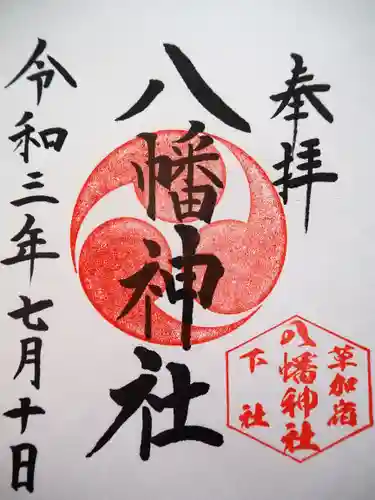 奉拝
八幡神社
令和三年七月十日
草加宿
八幡神社
下社